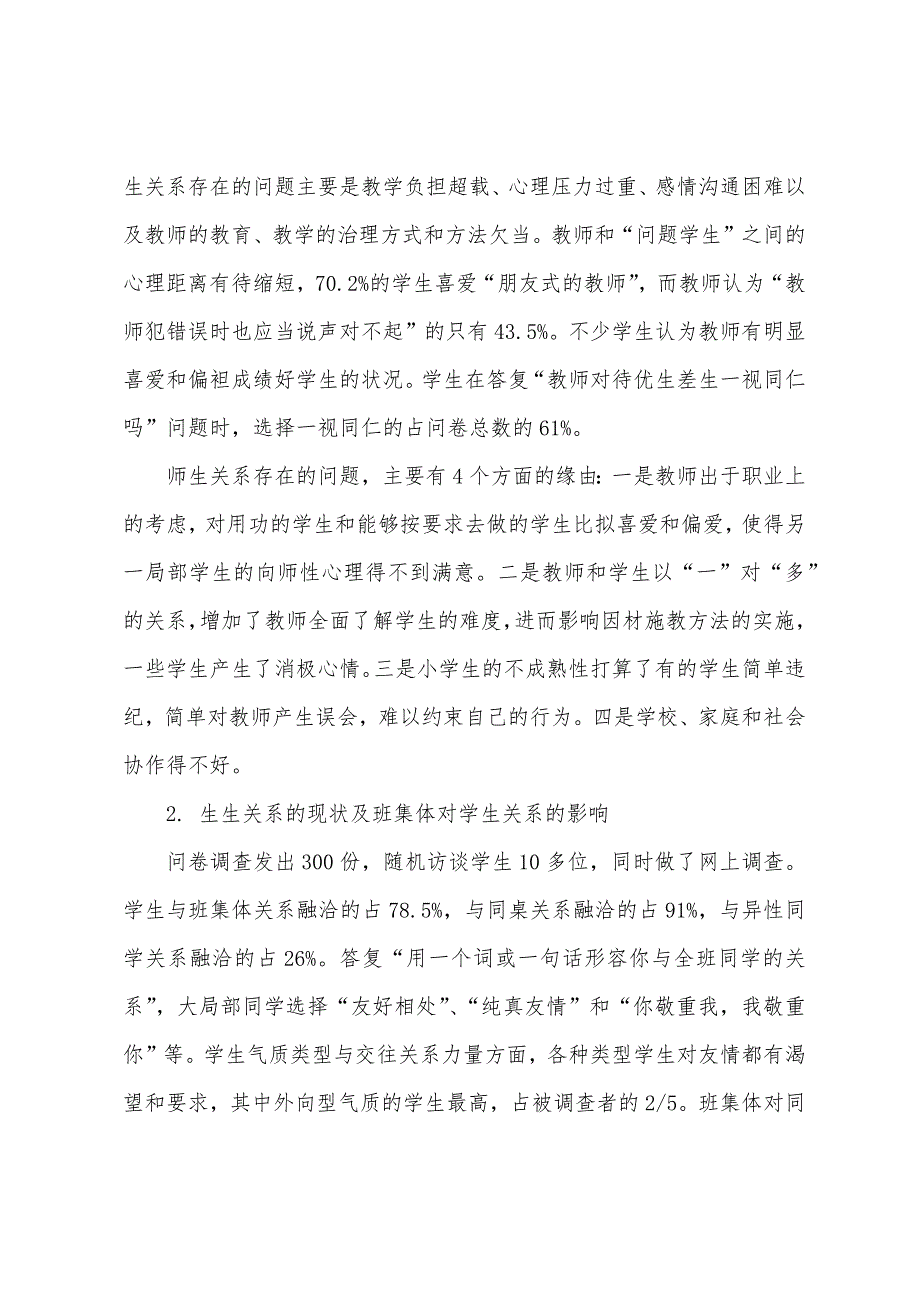 生关系存在的问题主要是教学负担超载、心理压力过重、感情沟通困难以
及教师的教育、教学的治理方式和方法欠当。教师和“问题学生”之间的
心理距离有待缩短，70.2%的学生喜爱“朋友式的教师”，而教师认为“教
师犯错误时也应当说声对不起”的只有 43.5%。不少学生认为教师有明显
喜爱和偏袒成绩好学生的状况。学生在答复“教师对待优生差生一视同仁
吗”问题时，选择一视同仁的占问卷总数的 61%。
师生关系存在的问题，主要有 4 个方面的缘由：一是教师出于职业上
的考虑，对用功的学生和能够按要求去做的学生比拟喜爱和偏爱，使得另
一局部学生的向师性心理得不到满意。二是教师和学生以“一”对“多”
的关系，增加了教师全面了解学生的难度，进而影响因材施教方法的实施，
一些学生产生了消极心情。三是小学生的不成熟性打算了有的学生简单违
纪，简单对教师产生误会，难以约束自己的行为。四是学校、家庭和社会
协作得不好。
2. 生生关系的现状及班集体对学生关系的影响
问卷调查发出 300 份，随机访谈学生 10 多位，同时做了网上调查。
学生与班集体关系融洽的占 78.5%，与同桌关系融洽的占 91%，与异性同
学关系融洽的占 26%。答复“用一个词或一句话形容你与全班同学的关
系”，大局部同学选择“友好相处”、“纯真友情”和“你敬重我，我敬重
你”等。学生气质类型与交往关系力量方面，各种类型学生对友情都有渴
望和要求，其中外向型气质的学生最高，占被调查者的 2/5。班集体对同